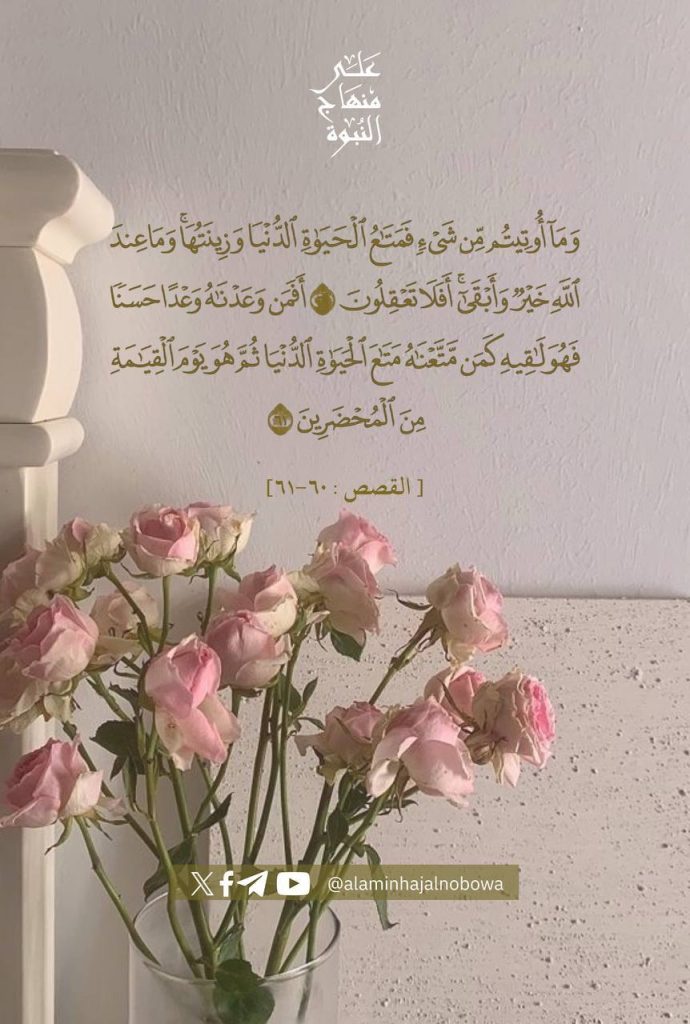 على
منهاج
النبوة
وَمَآ أُوتِيتُم مِّن شَىْءٍ فَمَتَٰعُ ٱلْحَيَوٰةِ ٱلدُّنْيَا وَزِينَتُهَا ۚ وَمَا عِندَ
ٱللَّهِ خَيْرٌ وَأَبْقَىٰٓ ۚ أَفَلَا تَعْقِلُونَ ٦٠ أَفَمَن وَعَدْنَٰهُ وَعْدًا حَسَنًا
فَهُوَ لَٰقِيهِ كَمَن مَّتَّعْنَٰهُ مَتَٰعَ ٱلْحَيَوٰةِ ٱلدُّنْيَا ثُمَّ هُوَ يَوْمَ ٱلْقِيَٰمَةِ
مِنَ ٱلْمُحْضَرِينَ ٦١
[ القصص : ٦٠-٦١]
@alaminhajalnobowa